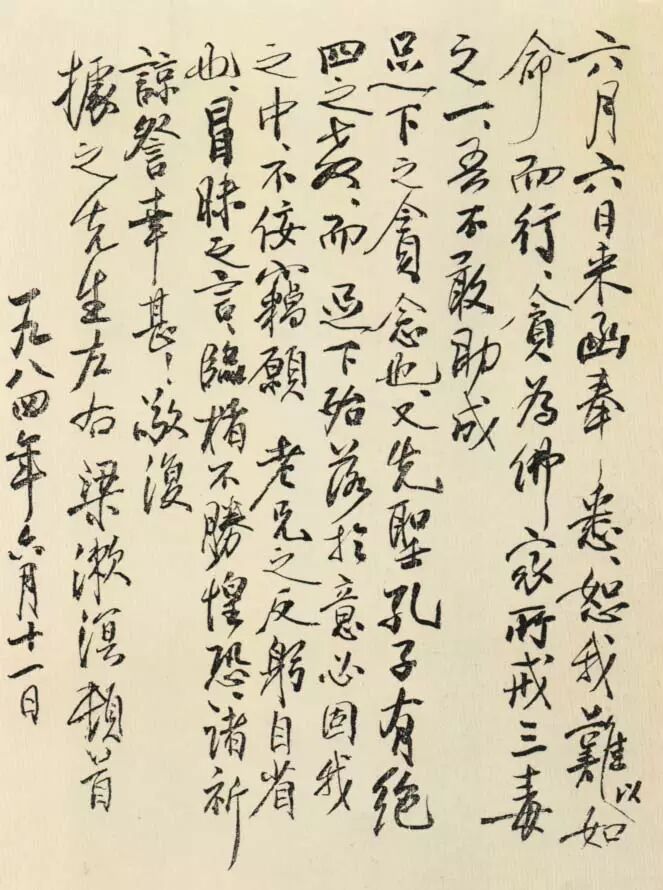 六月六日来函奉〻悉、恕我難以如
命而行、貪為佛家所戒三毒
之一、吾不敢助成
足下之貪念也、又先聖孔子有絕
四之教、而足下殆落於意必固我
之中、不佞竊願　老兄之反躬自省
也、冒昧之言、臨楮不勝惶恐、諸祈
諒詧幸甚〻敬復
據之先生左右　梁漱溟頓首
一九八四年六月十一日